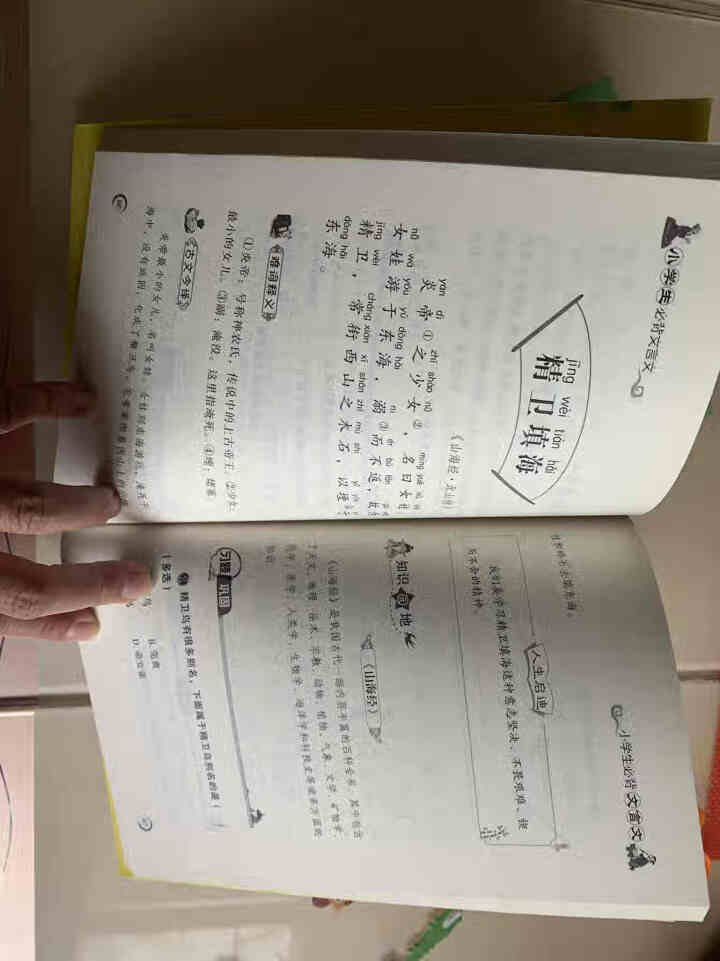 小学生必背文言文
jīng wèi tián hǎi
精卫填海
《山海经·北山经》
yán dì zhī shào nǚ
炎帝①之少女②，名曰女娃
nǚ wá yóu yú dōng hǎi
女娃游于东海，溺③而不返，故
jīng wèi cháng xián xī shān zhī mù shí
精卫，常衔西山之木石，以堙
dōng hǎi
东海。
难词释义
①炎帝：号称神农氏，传说中的上古帝王。②少女：
最小的女儿。③溺：淹没。这里指淹死。④堙：填塞
古文今译
炎帝最小的女儿，名叫女娃。女娃到东海游玩，淹死于
海中，没有返回，化成了精卫鸟，
小学生必背文言文
人生启迪
我们要学习精卫填海这种意志坚决、不畏艰难、锲
而不舍的精神。
知识
地
《山海经》
《山海经》是我国古代一部内容丰富的百科全书，其中包含
了天文、地理、巫术、宗教、动物、植物、气象、文学、矿物学、
医学、人类学、生物学、海洋学和科技史等诸多方面的
知识
习题巩固
精卫鸟有很多别名，下面属于精卫鸟别名的是（
）（多选）
鸟 B. 冤禽
鸟 D. 帝女雀